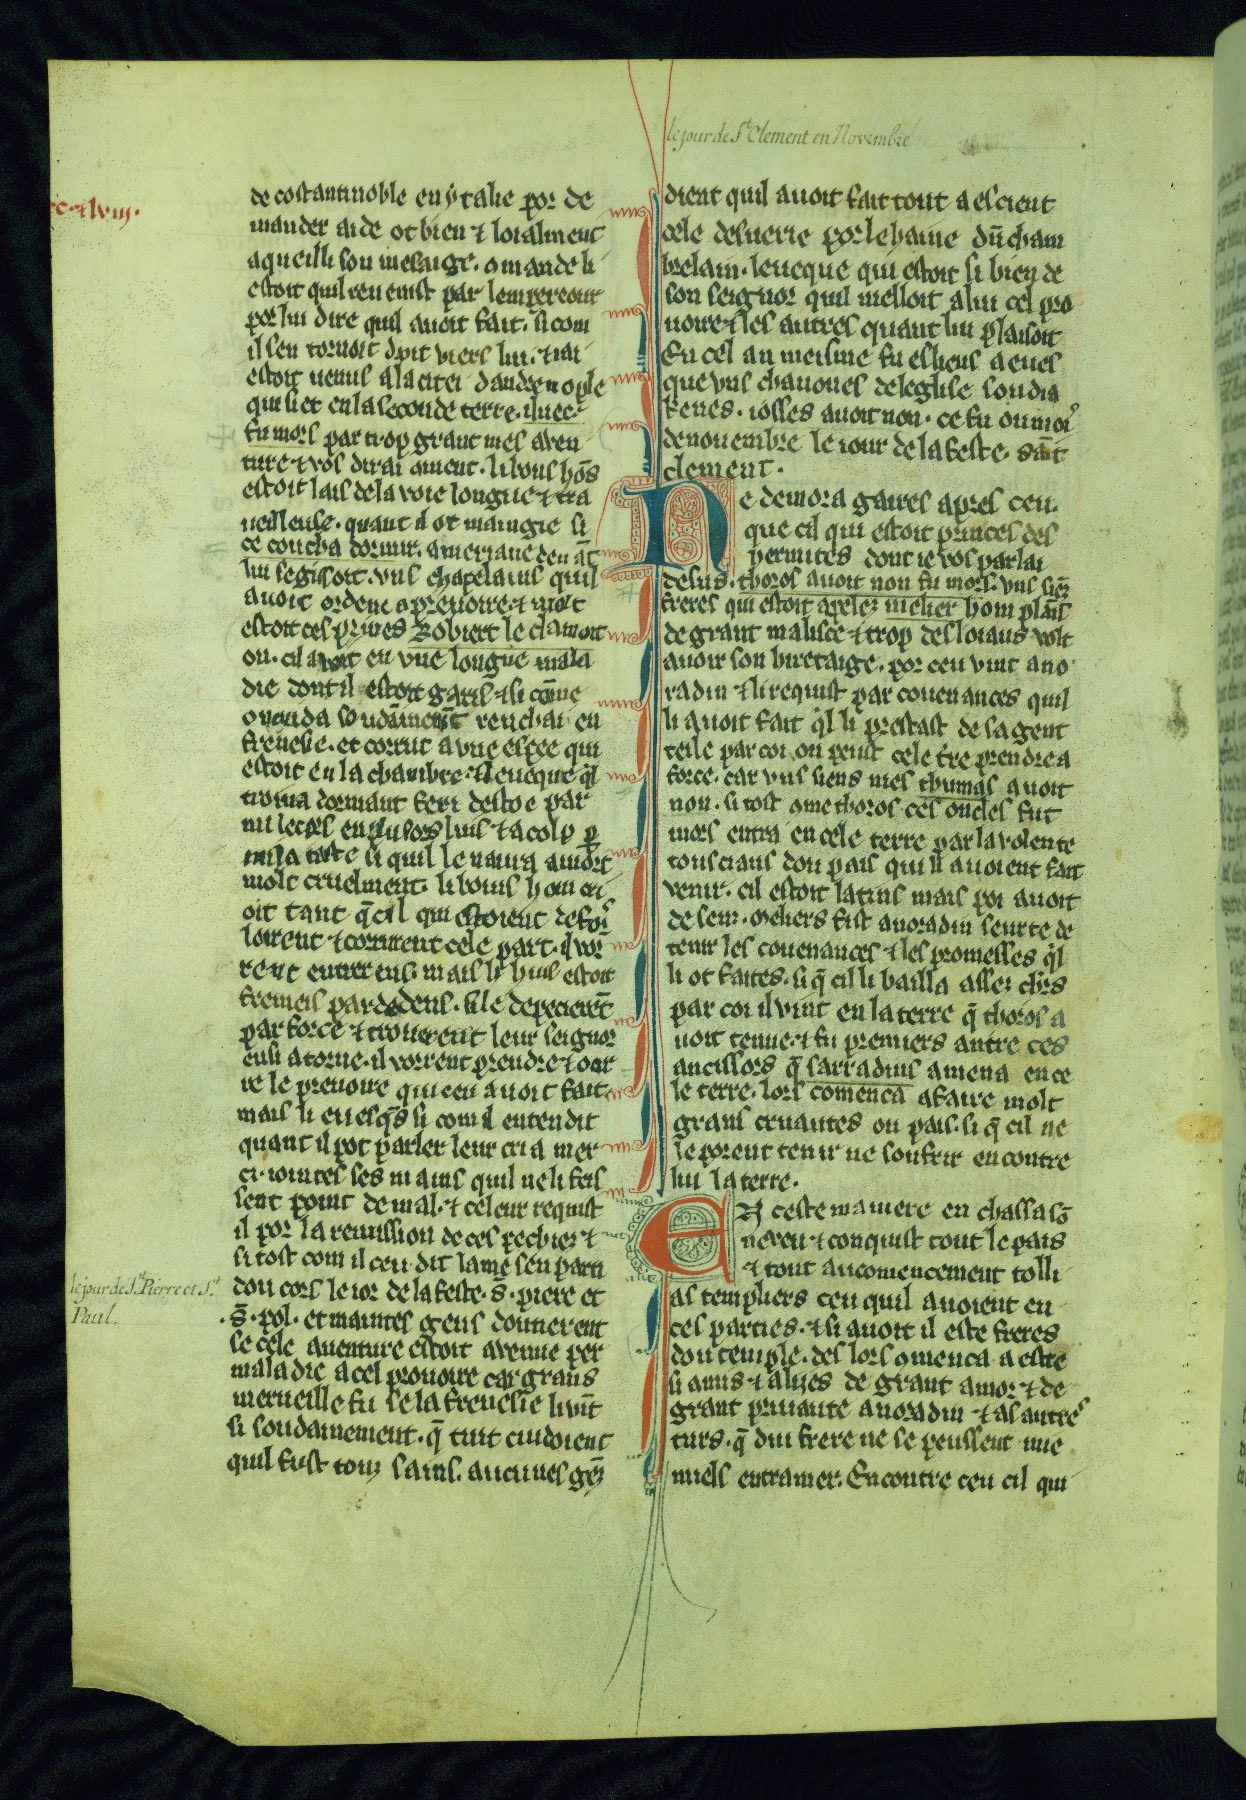 le jour de St Clement en Novembre
de costantinoble en ytalie por de
mander aide ot bien ⁊ loialment
aqueilli son mesaige. omande li
estoit quil reuenist par lempereour
por lui dire quil auoit fait. si com
il sen tornoit droit viers lui. ⁊ iai
estoit uenus a la citei dandrenople
qui siet en la seconde terre. iluec
fu mors par trop grant mes auen
ture ⁊ vos dirai oment. li bons hōs
estoit lais de la voie longue ⁊ tra
ueilleuse. quant il ot maingie si
ce coucha dormir. ameriane deuāt
lui se gisoit. vns chapelains quil
auoit ordene a preuoire. ⁊ molt
estoit ces priues Robiert le clamoit
on. cil auoit eu vne longue mala
die dont il estoit garis ⁊ si cōme
frenesie. et corrut a vne espee qui
estoit en la chambre. ⁊ leueque q̄l
troua dormant feri destoc par
mi la teste si quil le naura a mort
molt cruelment. li bons hom cri
oit tant q̄ cil qui estoient defors
loirent ⁊ corrurent cele part. il vor
rent entrer ens. mais li huis estoit
fremeis par dedens. si le depecierēt
par force ⁊ trouerent leur seignor
ensi atorne. il vorrent prendre ⁊ ocir
re le preuoire qui cen auoit fait.
mais li euesq̄s si com il entendit
quant il pot parler leur cria mer
ci. iointes ses mains quil ne li feis
sent point de mal. ⁊ celeur requist
il por la remission de ces pechiez ⁊
si tost com il ceu dit lame sen parti
dou cors le ior de la feste. s̄. piere et
le jour de St. Pierre et St.
Paul.
.s̄. pol. et maintes gens donnerent
se cele auenture estoit auenue per
maladie a cel prouoire car grans
merueille fu se la frenesie li vīt
si soudainement. q̄ tuit cuidoient
quil fust touz sains. aucunes gēz
dient quil auoit fait tout a escient
cele desuerie por le haine dū cham
brelain. leueque qui estoit si bien de
son seignor quil melloit a lui cel pro
uoire ⁊ les autres quant lui plaisoit
En cel an meisme fu esleus a eues
que vns chanones de leglise son dia
kenes. iosses auoit non. ce fu ou moi
de nouembre le iour de la feste. sāit
clement.
Ne demora gaires apres ceu.
que cil qui estoit princes des
hermites dont ie vos parlai
desus. thoros auoit non fu mors. vns siēz
freres qui estoit apelez melier hom plāis
de grant malisce ⁊ trop desloiaus volt
auoir son hiretaige. por ceu vint a no
radin ⁊ li requist par couenances quil
li auoit fait q̄l li prestast de sa gent
teile par coi on peust cele t̄re prendre a
force. car vns siens nies thumas auoit
non. si tost ome thoros ces oncles fut
mors entra en cele terre par la volente
tous ciaus dou pais qui li auoient fait
venir. cil estoit latins mais poi auoit
de sen. meliers fist a noradin seurte de
tenir les couenances ⁊ les promesses q̄l
li ot faites. si q̄ cil li bailla assez ch̄rs
par coi il vint en la terre q̄ thoros a
uoit tenue. ⁊ fu premiers antre ces
ancissors q̄ sarradins amena en ce
le terre. lors comenca a faire molt
grans cruautes ou pais. si q̄ cil ne
le porent tenir ne soufrir encontre
lui la terre.
En ceste maniere en chassa sō
neueu ⁊ conquist tout le pais
⁊ tout au comencement tolli
as templiers ceu quil auoient en
ces parties. ⁊ si auoit il este freres
dou temple. des lors omenca a estre
si amis ⁊ aliies de grant amor ⁊ de
grant priuaute a noradin ⁊ as autres
turs. q̄ dui frere ne se peussent mie
miels entramer. Encontre ceu cil qui